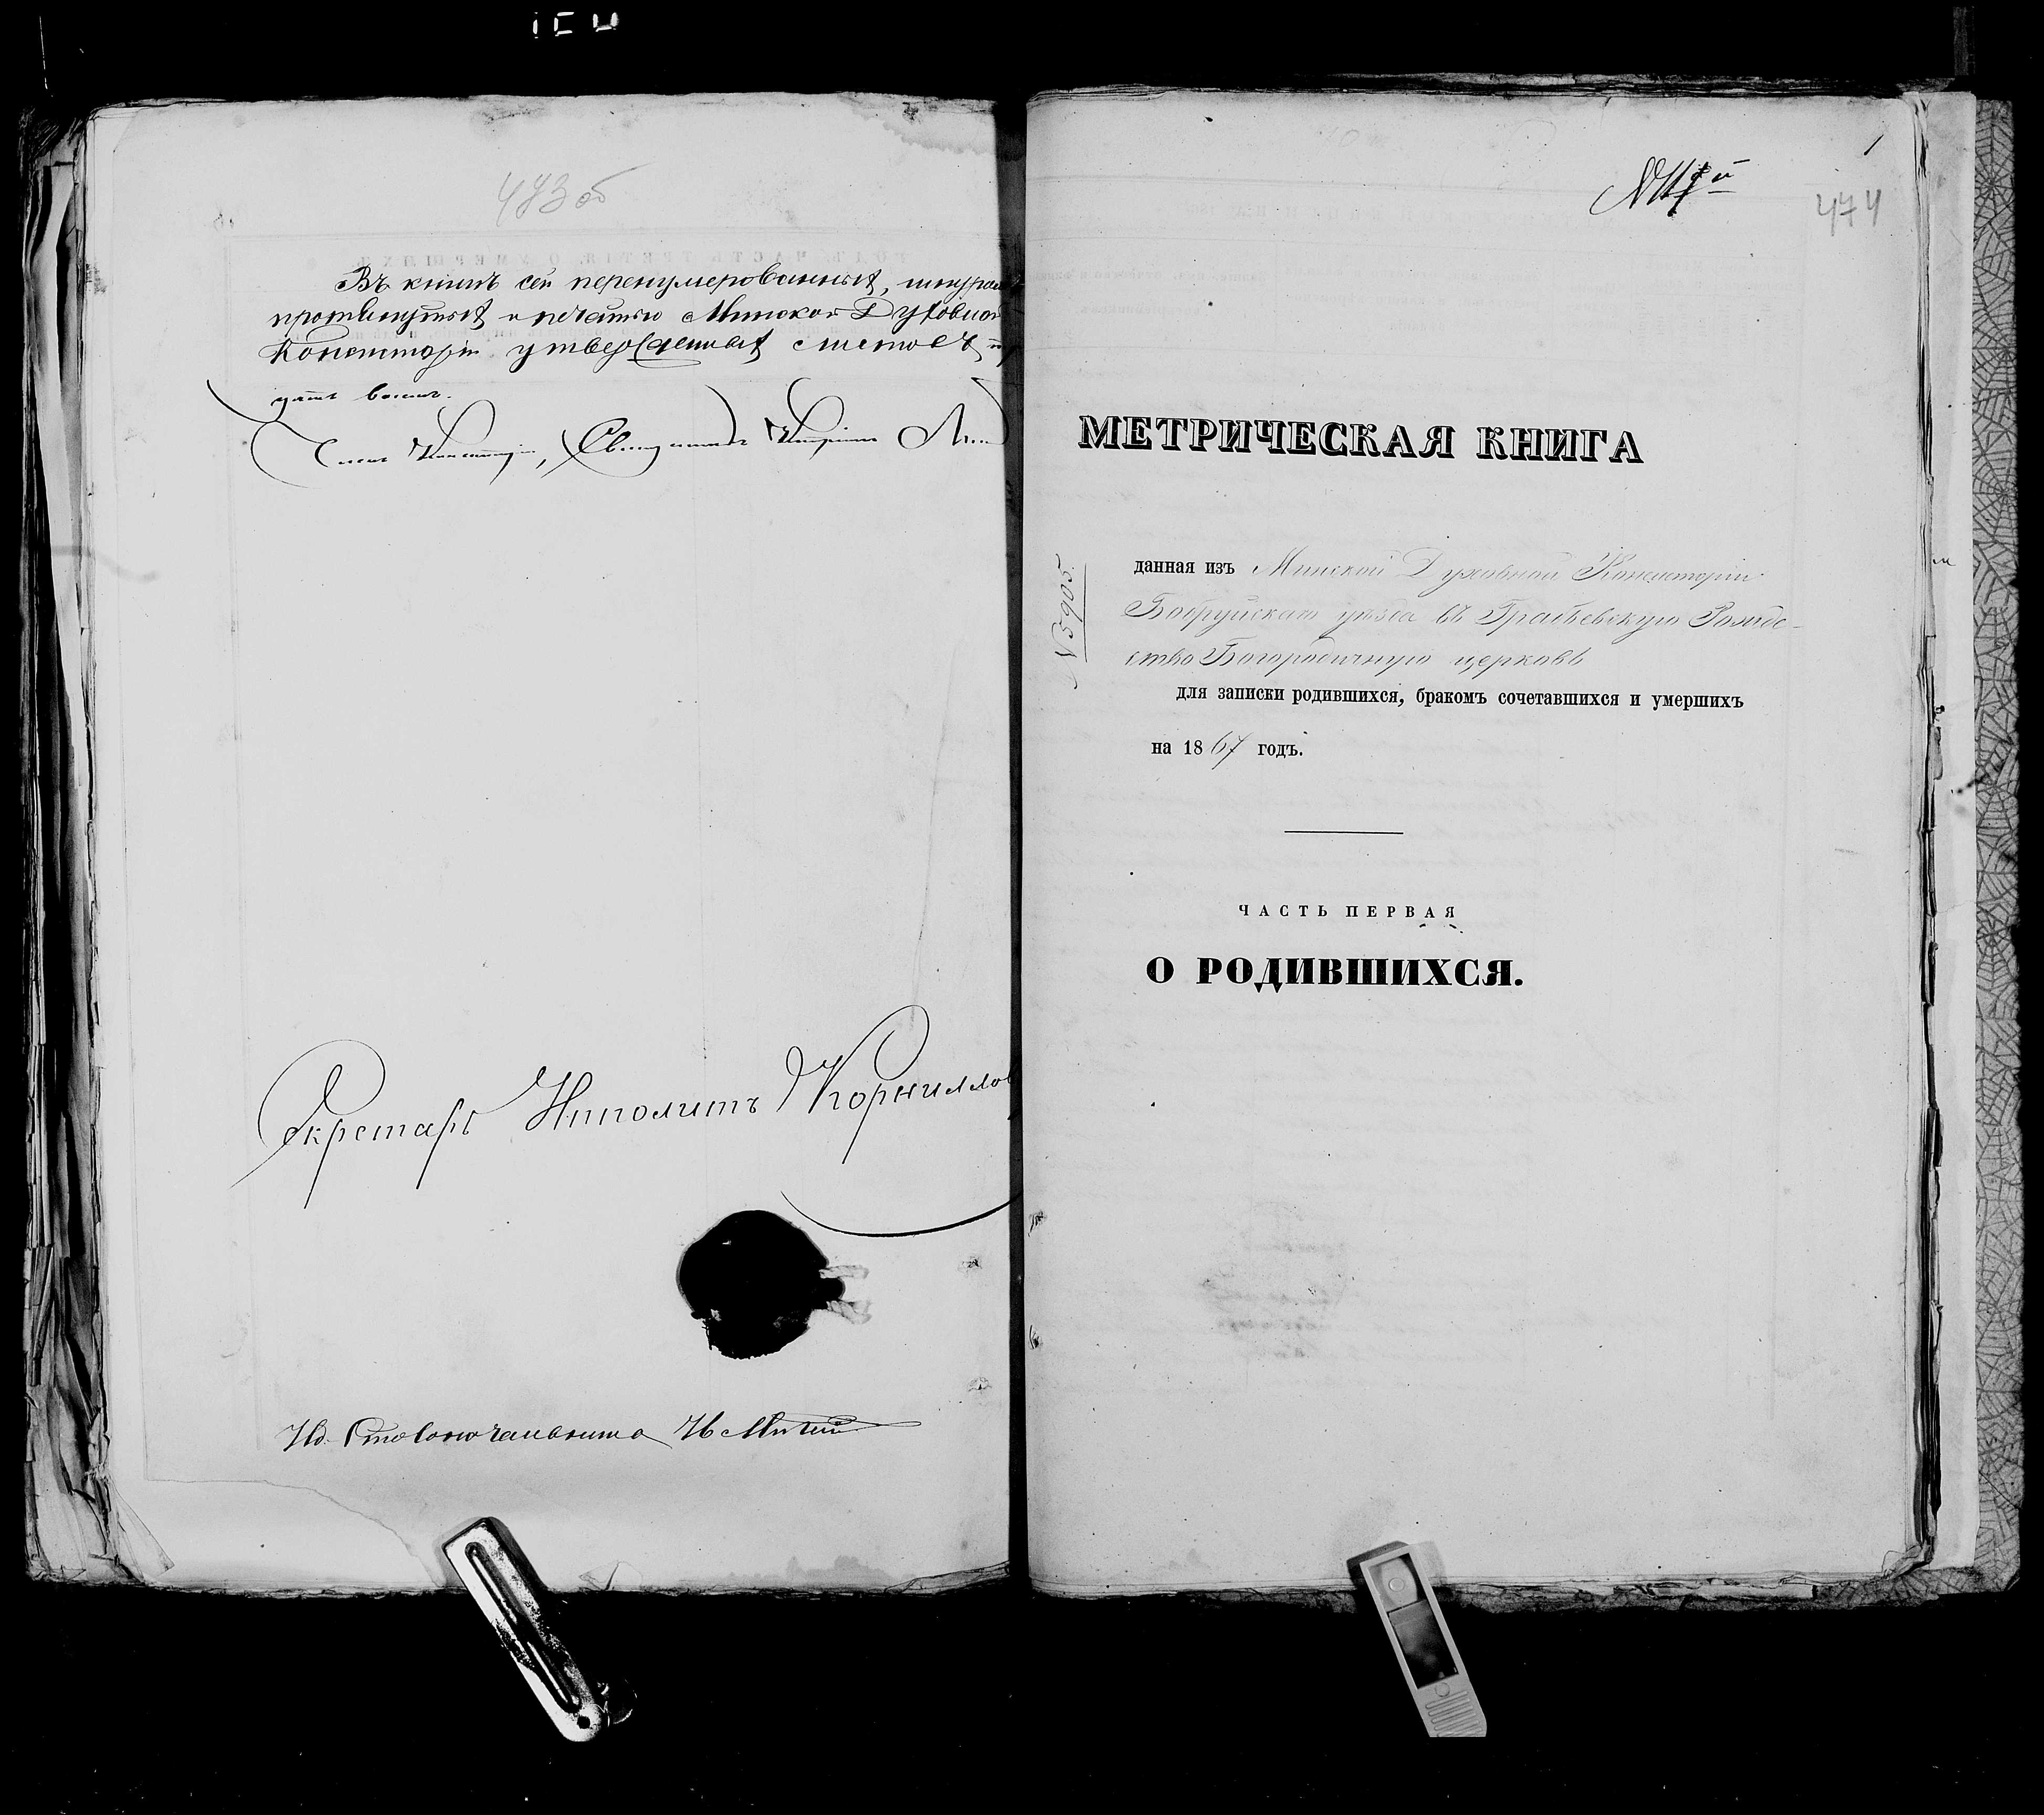 473 об
Въ книгѣ сей перенумерованныхъ, шнуромъ
протянутыхъ и печатью Минской Духовной
Консисторіи утвержденныхъ листовъ
цать восемь.
Членъ Консисторіи, Священникъ
Секретарь Ипполитъ Корниллов
Ид. Столоначальника
1
474
МЕТРИЧЕСКАЯ КНИГА
№ 5905
данная изъ Минской Духовной Консисторіи
Бобруйскаго уѣзда въ Грабьевскую Рожде-
ство Богородичную церковь
для записки родившихся, бракомъ сочетавшихся и умершихъ
на 1867 годъ.
ЧАСТЬ ПЕРВАЯ
О РОДИВШИХСЯ.